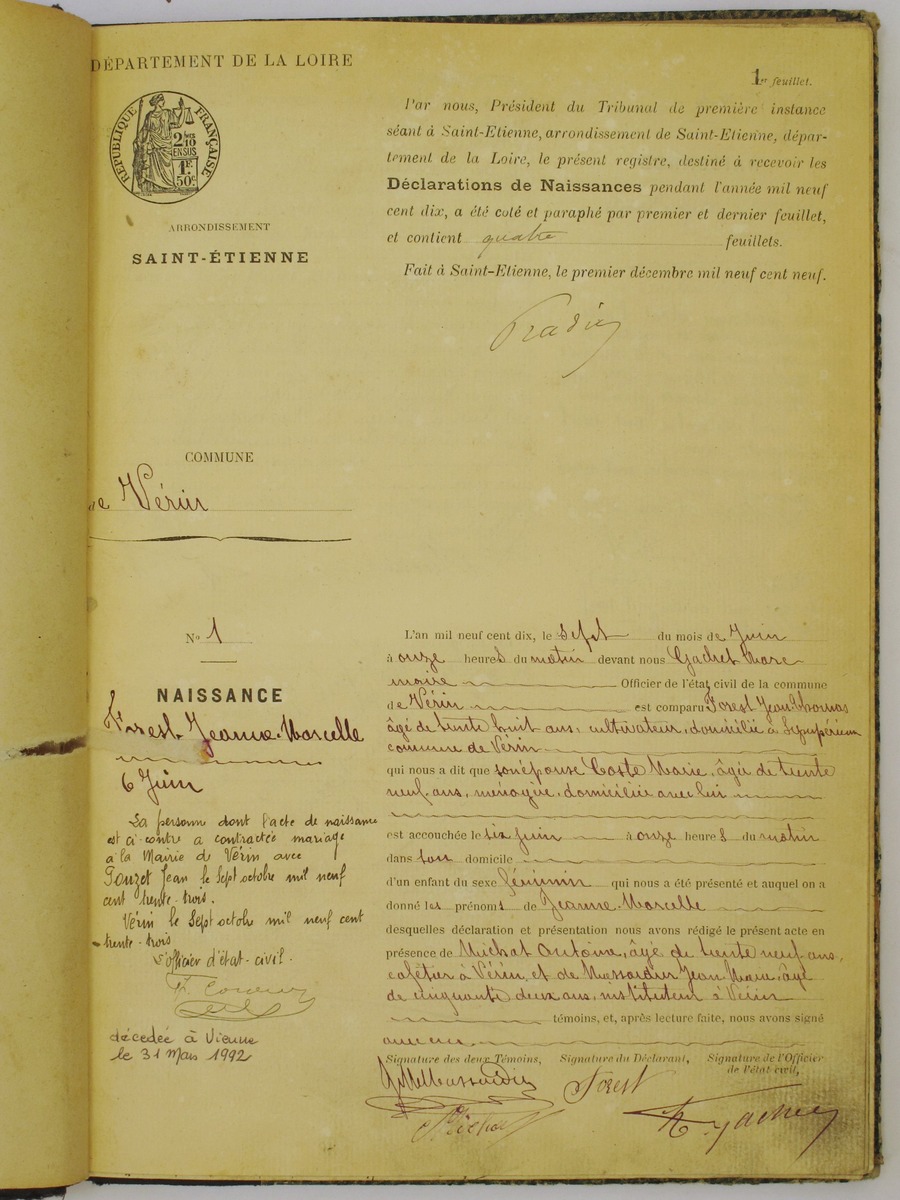 DÉPARTEMENT DE LA LOIRE
RÉPUBLIQUE FRANÇAISE
2/10
EN SUS
1F
50c
ARRONDISSEMENT
SAINT-ÉTIENNE
1er feuillet.
Par nous, Président du Tribunal de première instance
séant à Saint-Etienne, arrondissement de Saint-Etienne, dépar-
tement de la Loire, le présent registre, destiné à recevoir les
Déclarations de Naissances pendant l'année mil neuf
cent dix, a été coté et paraphé par premier et dernier feuillet,
et contient quatre feuillets.
Fait à Saint-Etienne, le premier décembre mil neuf cent neuf.
COMMUNE
de Vérin
No 1
NAISSANCE
Forest Jeanne-Marcelle
6 Juin
La personne dont l'acte de naissance
est ci-contre a contractée mariage
à la Mairie de Vérin avec
Pouzet Jean le Sept octobre mil neuf
cent trente-trois.
Vérin le Sept octobre mil neuf cent
trente-trois
L'officier d'état-civil.
décédée à Vienne
le 31 Mars 1992
L'an mil neuf cent dix, le Sept du mois de Juin
à onze heures du matin devant nous Gachet Marc
maire Officier de l'état civil de la commune
de Vérin est comparu Forest Jean-Thomas
âgé de trente huit ans, cultivateur, domicilié à
commune de Vérin
qui nous a dit que son épouse Coste Marie, âgée de trente
neuf ans, ménagère, domiciliée avec lui
est accouchée le six juin à onze heures du matin
dans son domicile
d'un enfant du sexe féminin qui nous a été présenté et auquel on a
donné les prénoms de Jeanne-Marcelle
desquelles déclaration et présentation nous avons rédigé le présent acte en
présence de Michat Antoine, âgé de trente neuf ans,
cafetier à Vérin, et de Massardier Jean Marie, âgé
de cinquante deux ans, instituteur à Vérin
témoins, et, après lecture faite, nous avons signé
avec eux.
Signature des deux Témoins, Signature du Déclarant, Signature de l'Officier
de l'état civil,
JM Massardier
Forest
Michat
Gachet